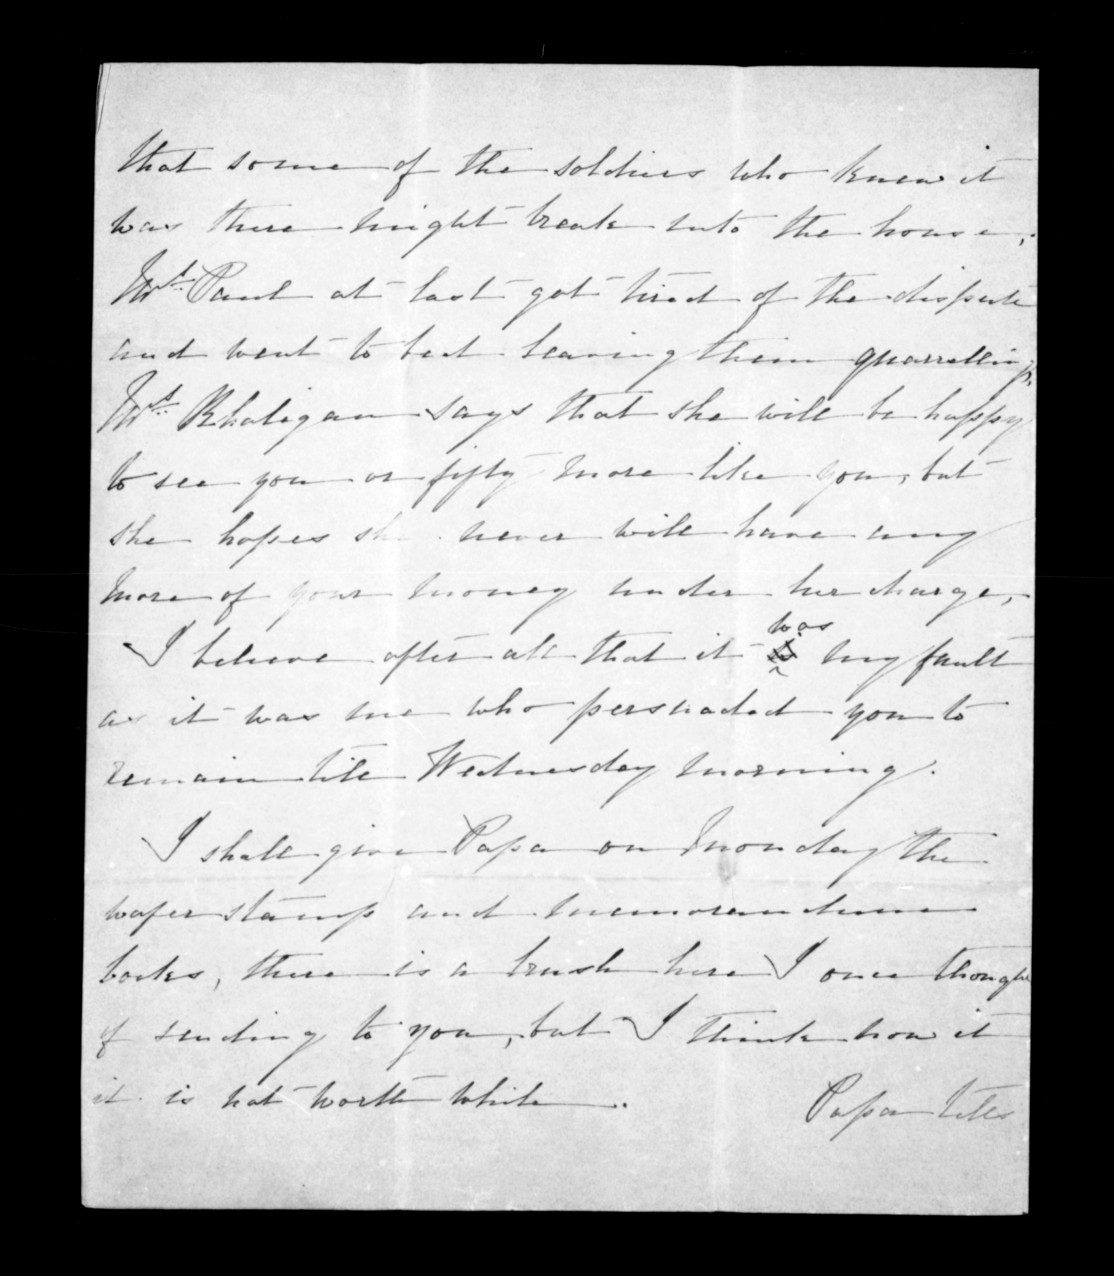 that some of the soldiers who knew it
was there might break into the house,
Mrs. Paul at last got tired of the dispute
and went to bed leaving them quarrelling,
Mrs. Rhatigan says that she will be happy
to see you or fifty more like you, but
she hopes she never will have any
more of your money under her charge,
I believe after all that it was my fault
as it was me who persuaded you to
remain till Wednesday morning.
I shall give Papa on Monday the
wafer stamp and memorandum
books, there is a brush here I once thought
of sending to you, but I think now it
it is not worth while.
Papa tells